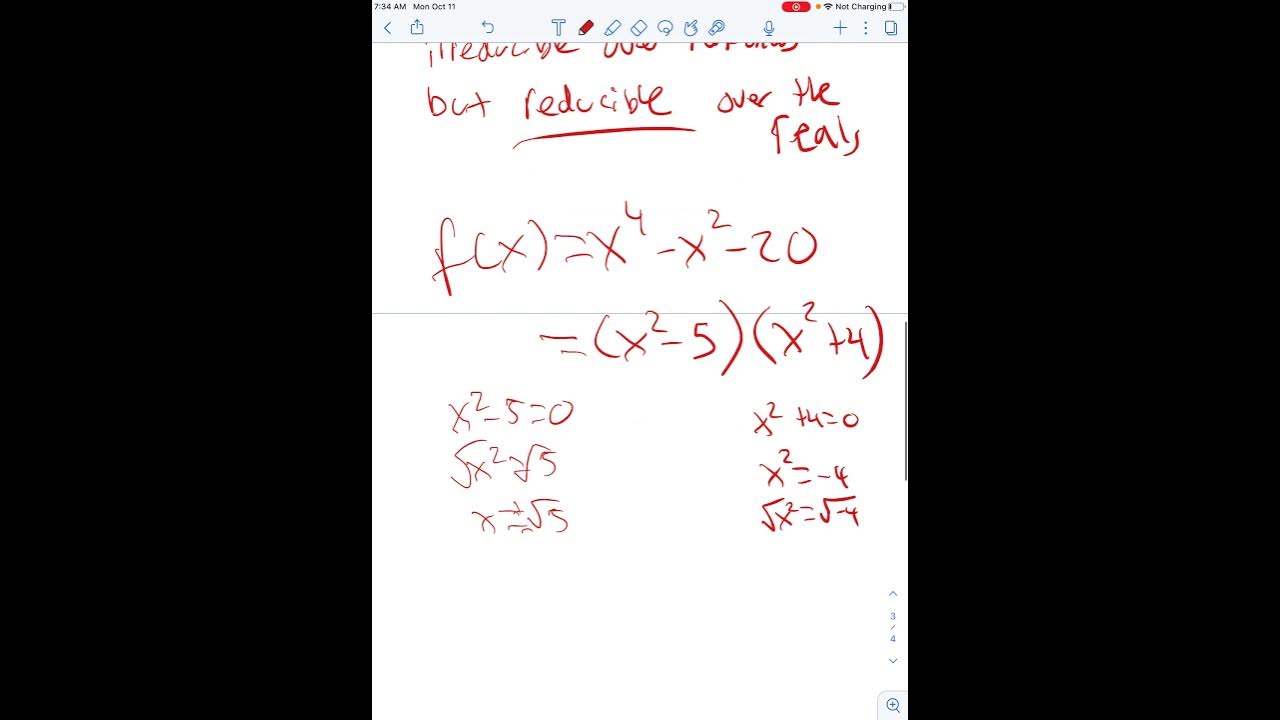 7:34 AM Mon Oct 11
Not Charging
T
irreducible over
but reducible over the
reals
f(x)=x⁴-x²-20
=(x²-5)(x²+4)
x²-5=0
√x²=√5
x=±√5
x²+4=0
x²=-4
√x²=√-4
3
/
4